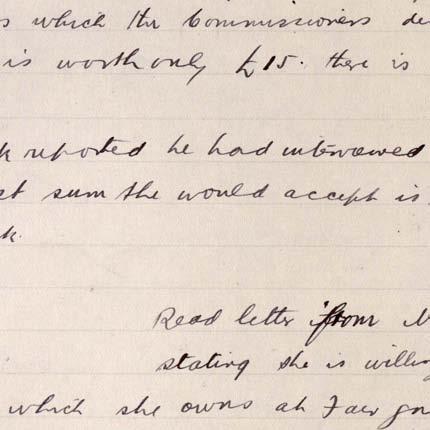 s which the Commissioners de
is worth only £15. there is
k reported he had interviewed
st sum she would accept is
k.
Read letter from
stating she is willing
which she owns at Fair